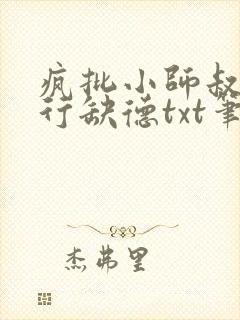 疯批小師叔
行缺德txt筆
杰弗里